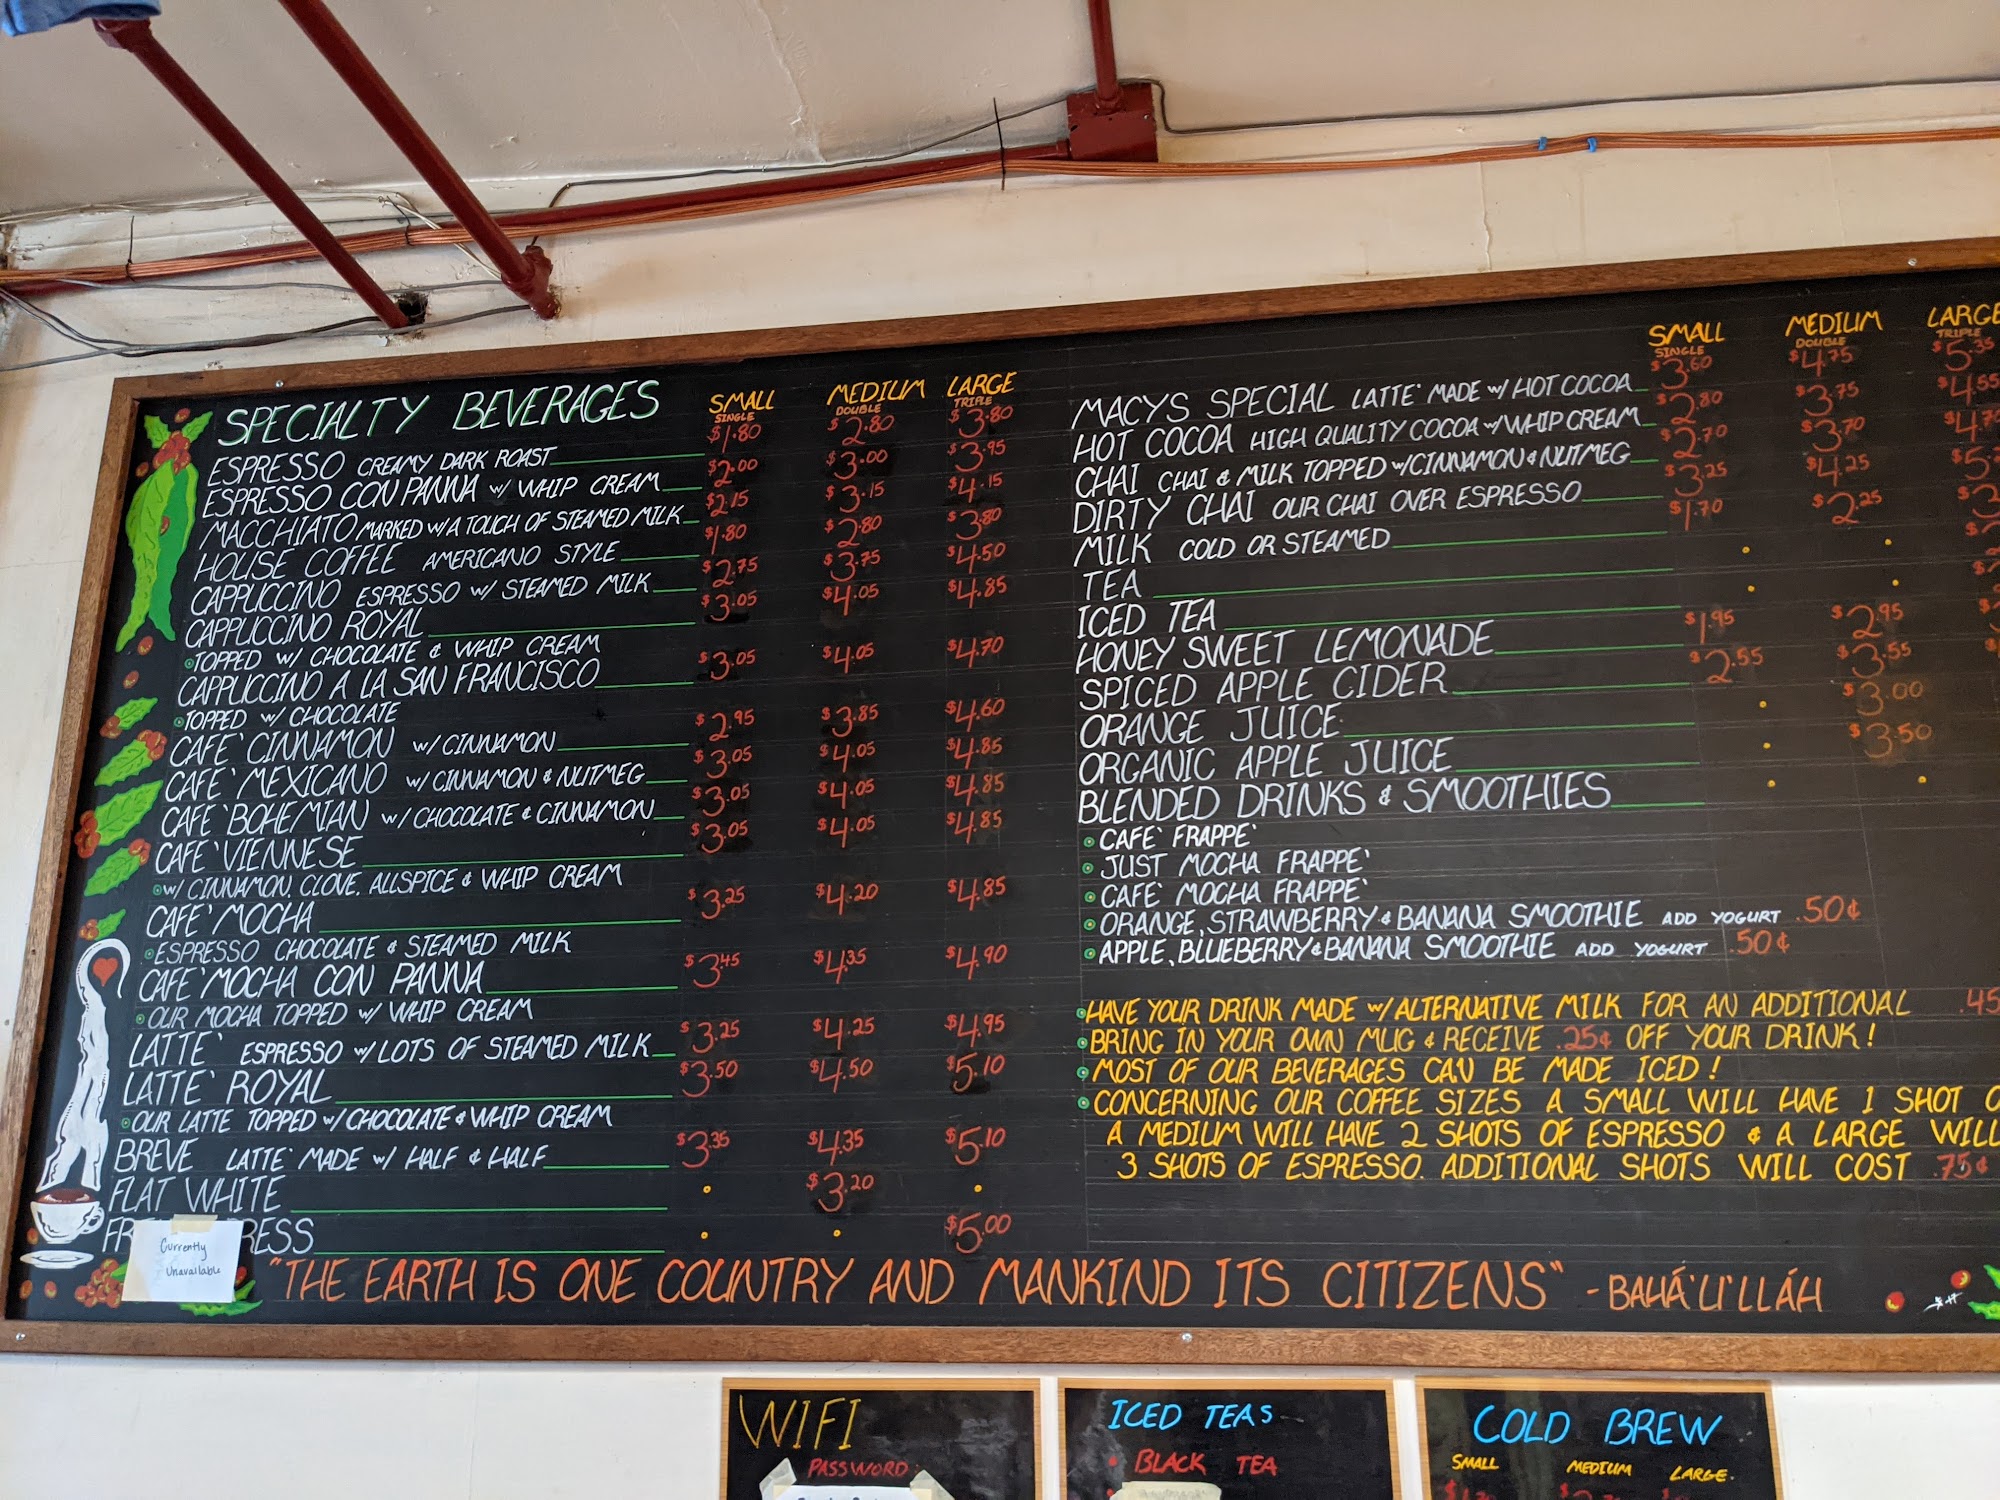 SPECIALTY BEVERAGES SMALL MEDIUM LARGE
SINGLE DOUBLE TRIPLE
ESPRESSO CREAMY DARK ROAST $1.80 $2.80 $3.80
ESPRESSO CON PANNA W/ WHIP CREAM $2.00 $3.00 $3.95
MACCHIATO MARKED W/A TOUCH OF STEAMED MILK $2.15 $3.15 $4.15
HOUSE COFFEE AMERICANO STYLE $1.80 $2.80 $3.80
CAPPUCCINO ESPRESSO W/ STEAMED MILK $2.75 $3.75 $4.50
CAPPUCCINO ROYAL $3.05 $4.05 $4.85
TOPPED W/ CHOCOLATE & WHIP CREAM
CAPPUCCINO A LA SAN FRANCISCO $3.05 $4.05 $4.70
TOPPED W/ CHOCOLATE
CAFE` CINNAMON W/ CINNAMON $2.95 $3.85 $4.60
CAFE` MEXICANO W/ CINNAMON & NUTMEG $3.05 $4.05 $4.85
CAFE` BOHEMIAN W/ CHOCOLATE & CINNAMON $3.05 $4.05 $4.85
CAFE` VIENNESE $3.05 $4.05 $4.85
W/ CINNAMON, CLOVE, ALLSPICE & WHIP CREAM
CAFE` MOCHA $3.25 $4.20 $4.85
ESPRESSO CHOCOLATE & STEAMED MILK
CAFE` MOCHA CON PANNA $3.45 $4.35 $4.90
OUR MOCHA TOPPED W/ WHIP CREAM
LATTE` ESPRESSO W/ LOTS OF STEAMED MILK $3.25 $4.25 $4.95
LATTE` ROYAL $3.50 $4.50 $5.10
OUR LATTE TOPPED W/ CHOCOLATE & WHIP CREAM
BREVE LATTE` MADE W/ HALF & HALF $3.35 $4.35 $5.10
FLAT WHITE $3.20
$5.00
Currently
Unavailable
SMALL MEDIUM LARGE
SINGLE DOUBLE TRIPLE
MACYS SPECIAL LATTE` MADE W/ HOT COCOA $3.60 $4.75 $5.35
HOT COCOA HIGH QUALITY COCOA W/ WHIP CREAM $2.80 $3.75 $4.55
CHAI CHAI & MILK TOPPED W/ CINNAMON & NUTMEG $2.70 $3.70
DIRTY CHAI OUR CHAI OVER ESPRESSO $3.25 $4.25
MILK COLD OR STEAMED $1.70 $2.25
TEA
ICED TEA
HONEY SWEET LEMONADE $1.95 $2.95
SPICED APPLE CIDER $2.55 $3.55
ORANGE JUICE $3.00
ORGANIC APPLE JUICE $3.50
BLENDED DRINKS & SMOOTHIES
CAFE` FRAPPE`
JUST MOCHA FRAPPE`
CAFE` MOCHA FRAPPE`
ORANGE, STRAWBERRY & BANANA SMOOTHIE ADD YOGURT .50¢
APPLE, BLUEBERRY & BANANA SMOOTHIE ADD YOGURT .50¢
HAVE YOUR DRINK MADE W/ ALTERNATIVE MILK FOR AN ADDITIONAL .45
BRING IN YOUR OWN MUG & RECEIVE .25¢ OFF YOUR DRINK!
MOST OF OUR BEVERAGES CAN BE MADE ICED!
CONCERNING OUR COFFEE SIZES A SMALL WILL HAVE 1 SHOT
A MEDIUM WILL HAVE 2 SHOTS OF ESPRESSO & A LARGE WILL
3 SHOTS OF ESPRESSO. ADDITIONAL SHOTS WILL COST .75¢
"THE EARTH IS ONE COUNTRY AND MANKIND ITS CITIZENS" - BAHÁ'U'LLÁH
WIFI
PASSWORD:
ICED TEAS
BLACK TEA
COLD BREW
SMALL MEDIUM LARGE